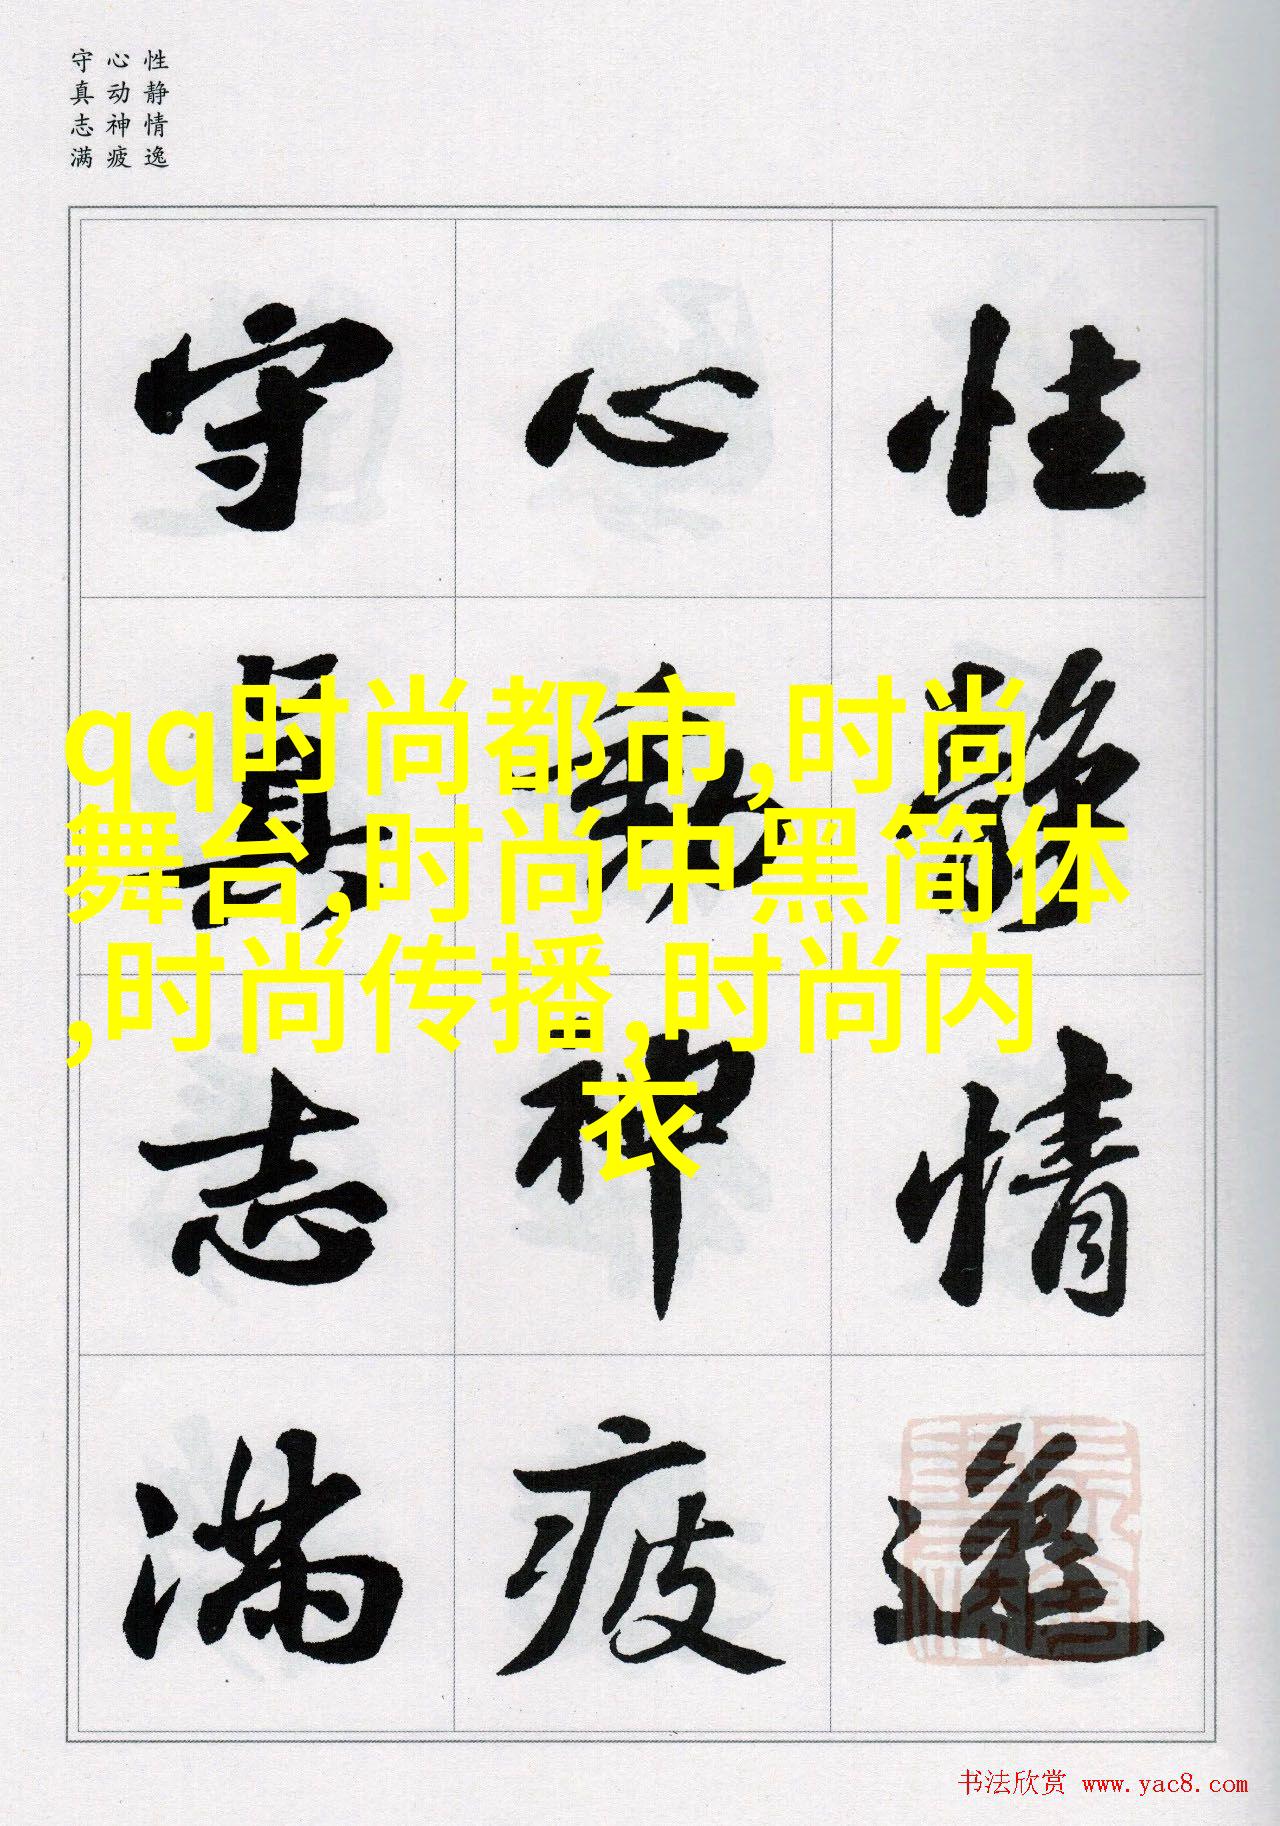 性静情逸
心动神疲
守真志满
性静情逸
心動神疲
守真志满
qq时尚都市,时尚
舞台,时尚中黑简体
,时尚传播,时尚内
衣
书法欣赏 www.yac8.com